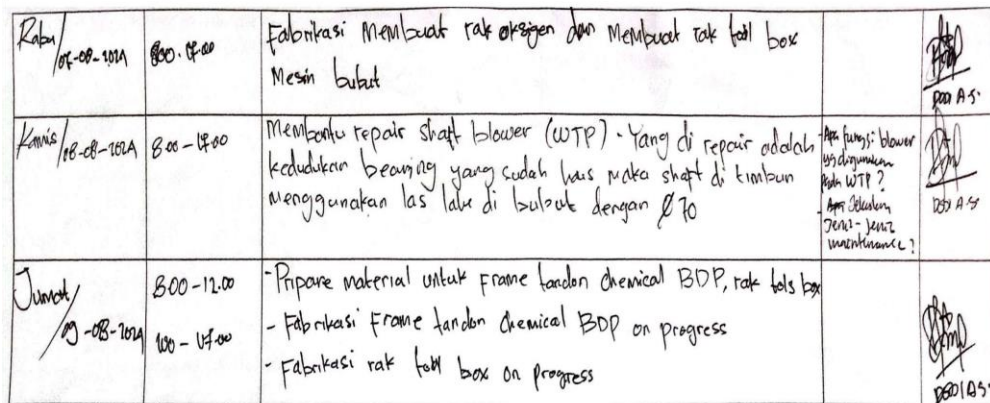 Rabu
/07-08-2024
800-17.00
Fabrikasi Membuat rak oksigen dan Membuat rak toll box
Mesin bubut
DODI A.S.
Kamis
/08-08-2024
8.00 - 17.00
Membantu repair shaft blower (WTP). Yang di repair adalah
kedudukan bearing yang sudah haus maka shaft di timbun
menggunakan las lalu di bubut dengan Ø 70
- Apa fungsi blower
yg digunakan
pada WTP ?
- Jelaskan
Jenis-jenis
maintenance ?
DODI A.S
Jumat/
09-08-2024
800-12.00
100 - 17.00
- Pripare material untuk Frame tandon chemical BDP, rak tols box
- Fabrikasi Frame tandon chemical BDP on progress
- Fabrikasi rak toll box on progress
DODI A.S.